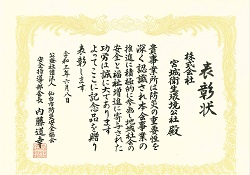 表彰状
株式会社
宮城衛生環境公社 殿
貴事業所は防災の重要性を
深く認識され本会事業の
推進に積極的に参画し地域社会の
安全と福祉増進に寄与された
功労は誠に大であります
よってここに記念品を贈り
表彰します
令和三年六月八日
公益社団法人 仙台市防災安全協会
安全指導部会長 内藤道幸